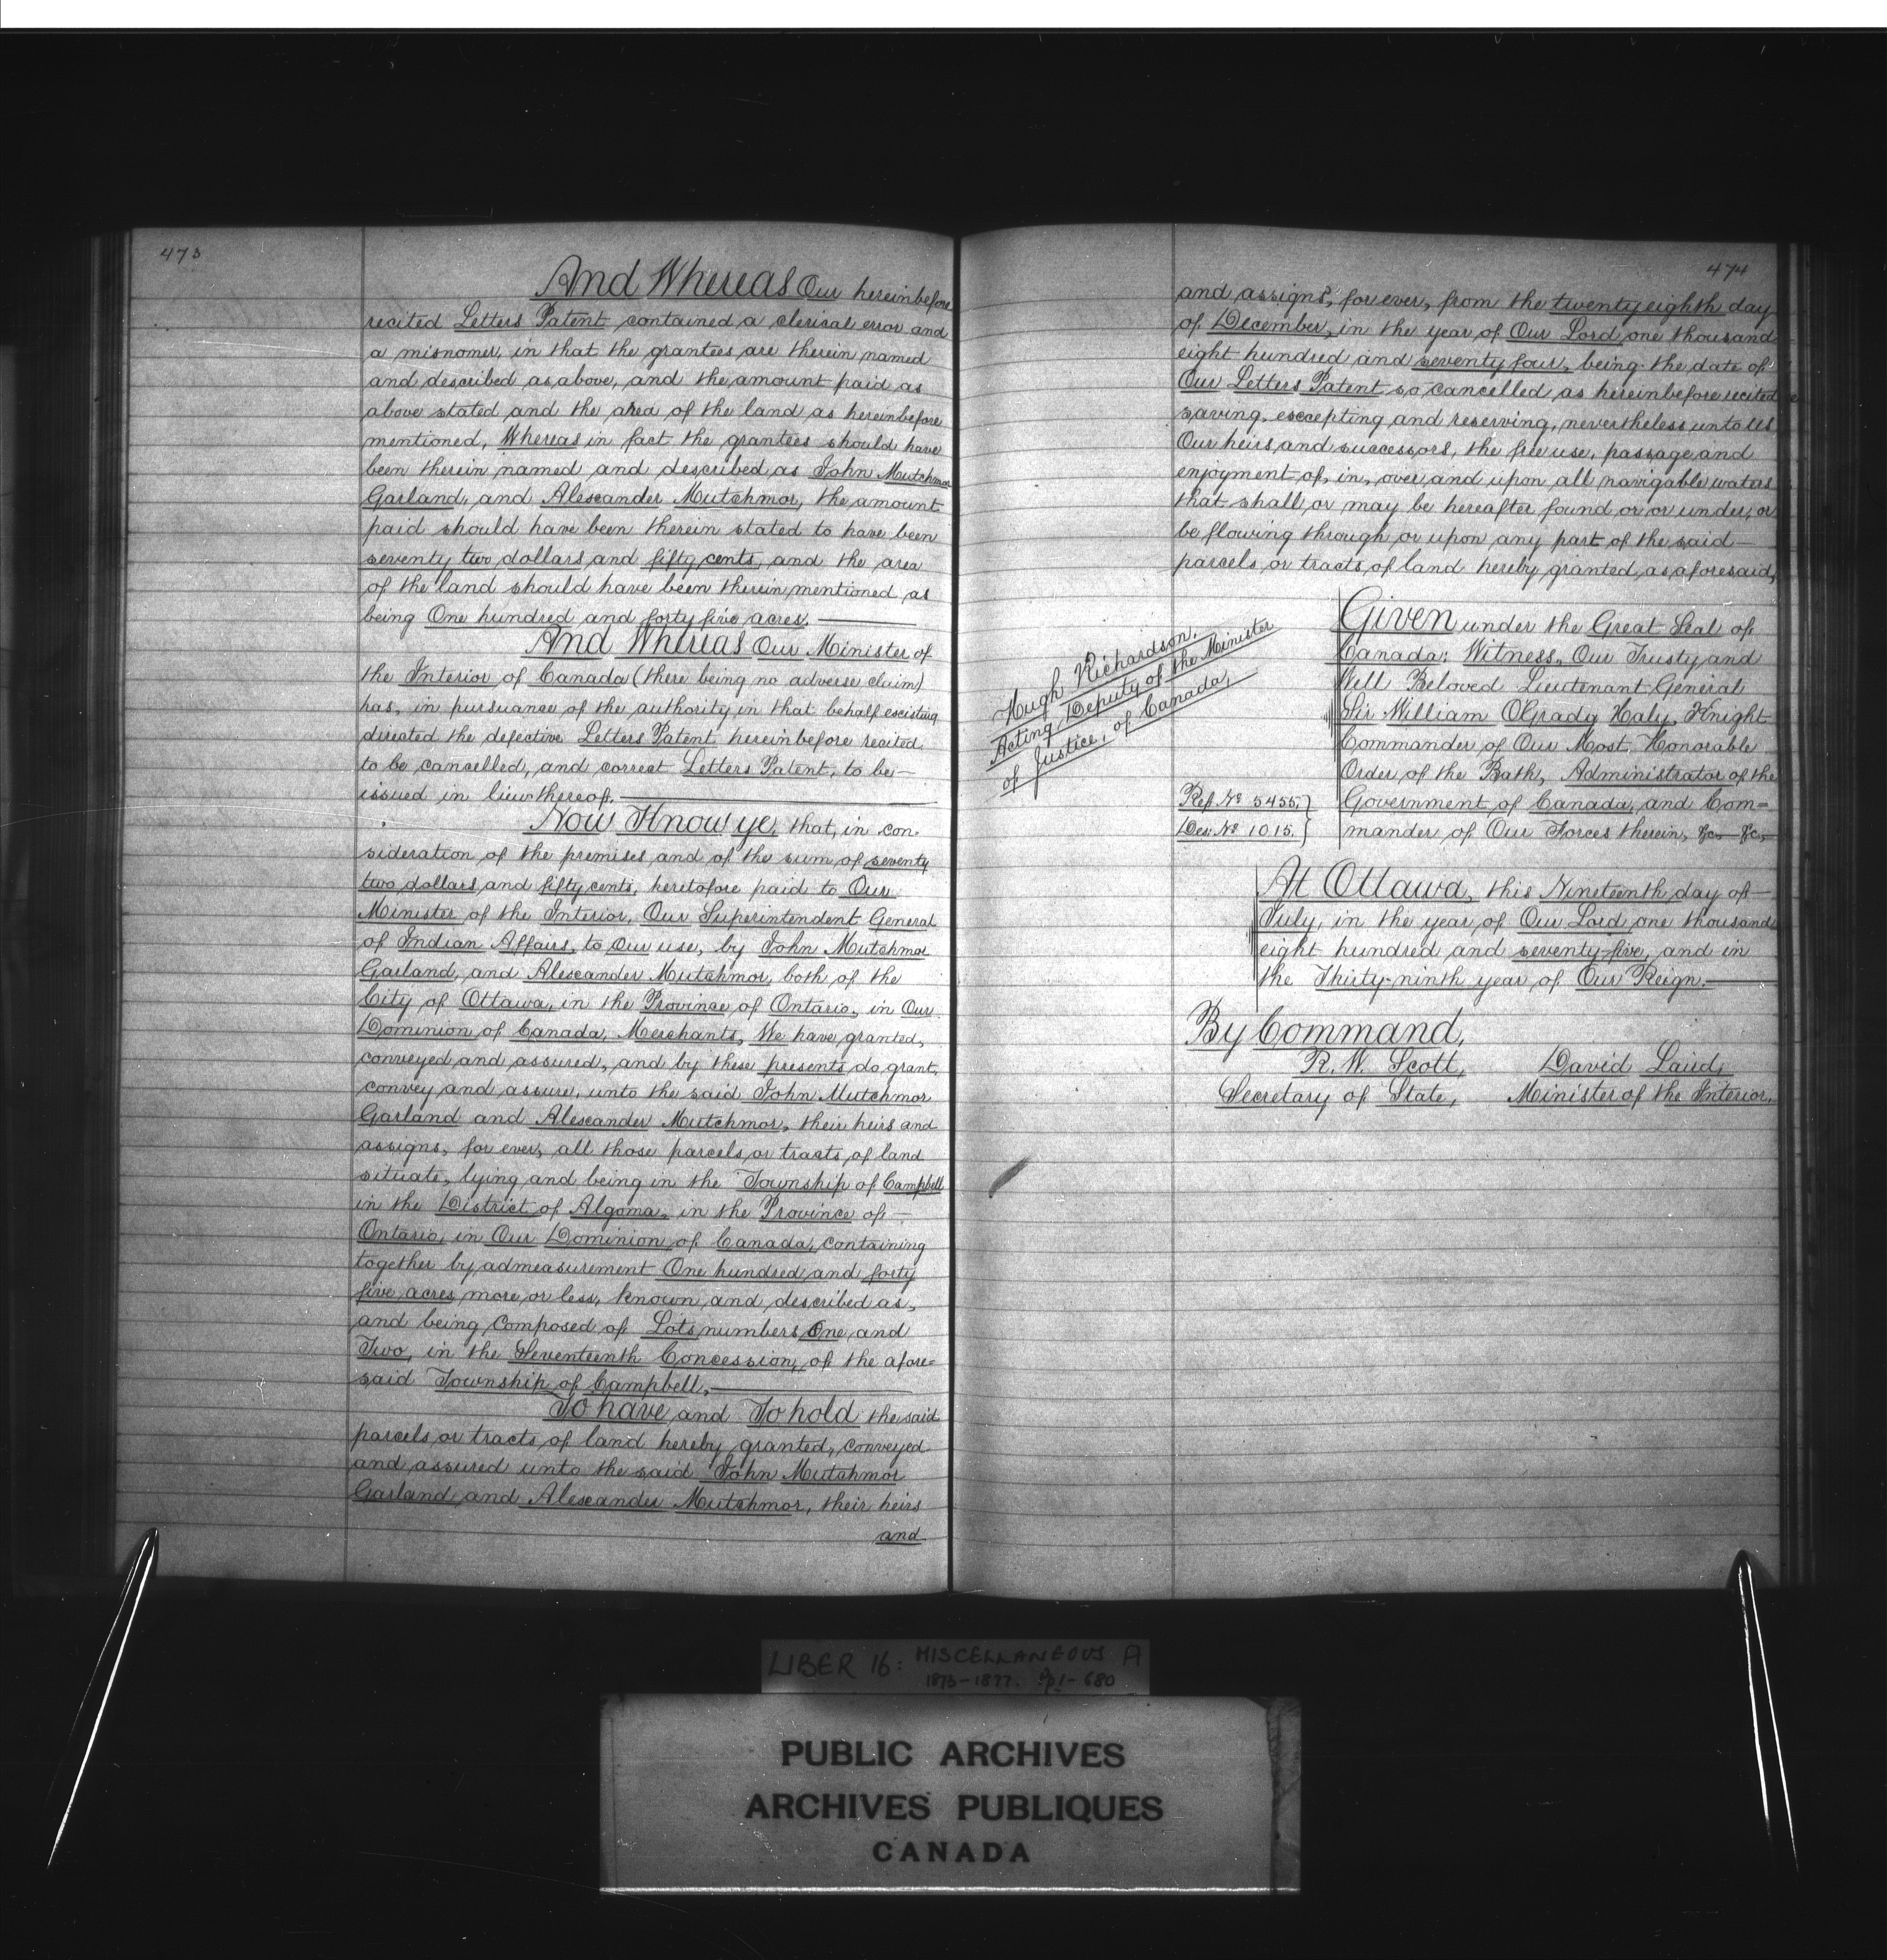 473
And Whereas Our hereinbefore
recited Letters Patent contained a clerical error and
a misnomer, in that the grantees are therein named
and described as above, and the amount paid as
above stated and the area of the land as hereinbefore
mentioned, Whereas in fact the grantees should have
been therein named and described as John Mutchmor
Garland, and Alexander Mutchmor, the amount
paid should have been therein stated to have been
seventy two dollars and fifty cents, and the area
of the land should have been therein mentioned as
being One hundred and forty five acres.
And Whereas Our Minister of
the Interior of Canada (there being no adverse claim)
has, in pursuance of the authority in that behalf existing
directed the defective Letters Patent hereinbefore recited
to be cancelled, and correct Letters Patent, to be
issued in lieu thereof.
Now Know ye, that, in con-
sideration of the premises and of the sum of seventy
two dollars and fifty cents, heretofore paid to Our
Minister of the Interior, Our Superintendent General
of Indian Affairs, to Our use, by John Mutchmor
Garland, and Alexander Mutchmor, both of the
City of Ottawa, in the Province of Ontario, in Our
Dominion of Canada, Merchants, We have granted,
conveyed and assured, and by these presents do grant,
convey and assure, unto the said John Mutchmor
Garland and Alexander Mutchmor, their heirs and
assigns, for ever, all those parcels or tracts of land
situate, lying and being in the Township of Campbell
in the District of Algoma, in the Province of
Ontario, in Our Dominion of Canada, containing
together by admeasurement One hundred and forty
five acres, more or less, known and described as,
and being composed of Lots numbers One and
Two, in the Seventeenth Concession, of the afore=
said Township of Campbell.
To have and To hold the said
parcels or tracts of land hereby granted, conveyed
and assured unto the said John Mutchmor
Garland and Alexander Mutchmor, their heirs
and
474
and assigns, for ever, from the twenty eighth day
of December, in the year of Our Lord one thousand
eight hundred and seventy four, being the date of
Our Letters Patent so cancelled as hereinbefore recited
saving, excepting and reserving, nevertheless unto Us
Our heirs and successors, the free use, passage and
enjoyment of, in, over and upon all navigable waters
that shall or may be hereafter found or or under, or
be flowing through or upon any part of the said
parcels or tracts of land hereby granted, as aforesaid,
Given under the Great Seal of
Canada: Witness, Our Trusty and
Well Beloved Lieutenant General
Sir William OGrady Haly, Knight
Commander of Our Most Honorable
Order of the Bath, Administrator of the
Government of Canada, and Com=
mander of Our Forces therein, &c, &c,
Hugh Richardson.
Acting Deputy of the Minister
of Justice, of Canada,
Ref. No 5455.
Des. No 1015.
At Ottawa, this Nineteenth day of
July, in the year of Our Lord one thousand
eight hundred and seventy-five, and in
the Thirty-ninth year of Our Reign.
By Command,
R. W. Scott, David Laird,
Secretary of State, Minister of the Interior.
LIBER 16: MISCELLANEOUS A
1873-1877. pp 1-680
PUBLIC ARCHIVES
ARCHIVES PUBLIQUES
CANADA